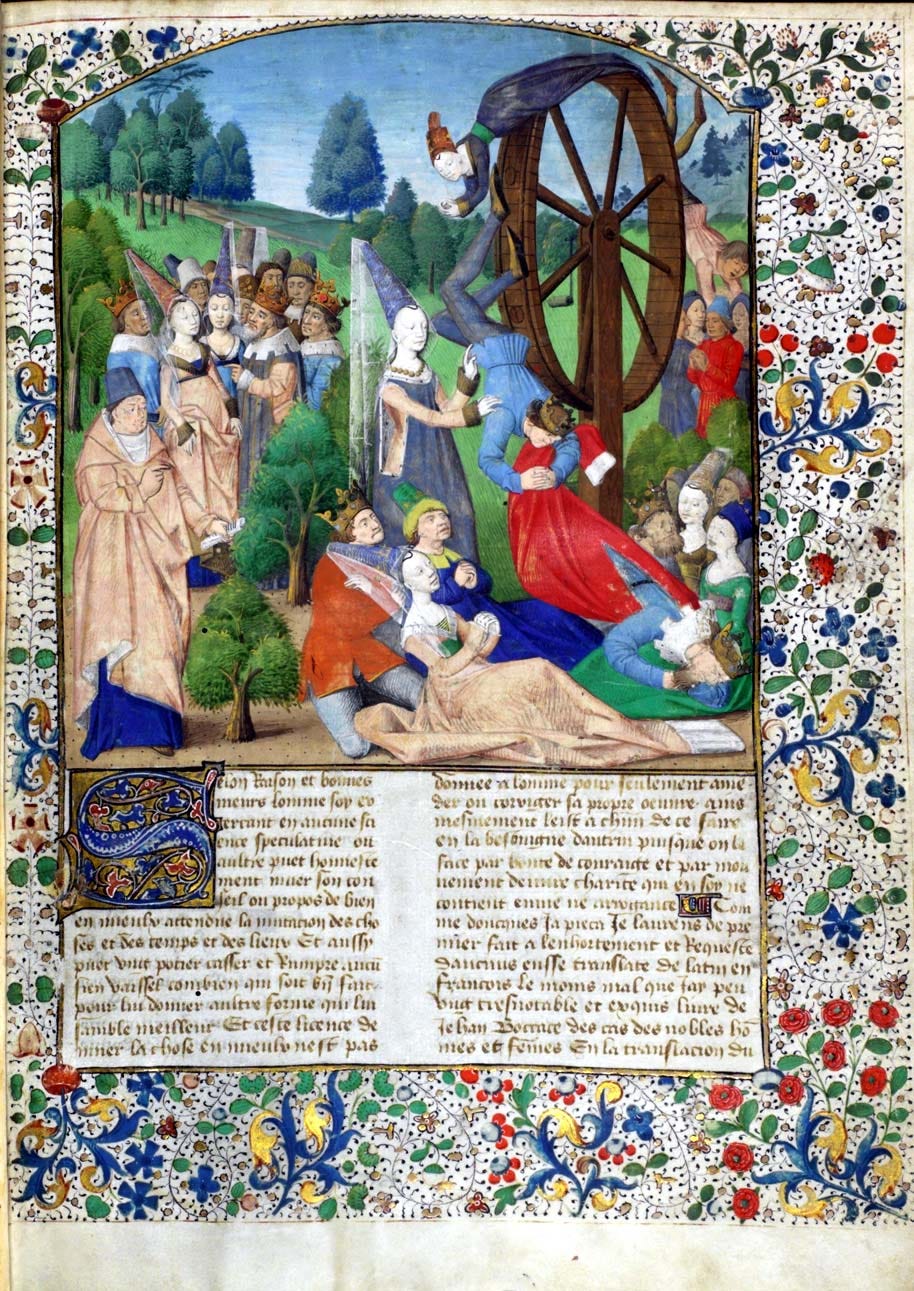 Selon Raison et bonnes
meurs lomme soy ex
ercant en aucune sci
ence speculatiue ou
aultre puet honneste
ment muer son con
seil ou propos de bien
en mieulx attendue la mutation des cho
ses et des temps et des lieux Et aussy
puet vng potier casser et Rompre aucū
sien vaissel combien quil soit bn̄ fait
pour lui donner aultre forme qui lui
samble meilleur Et ceste licence de
muer la chose en mieulx nest pas
donnee a lomme pour seulement amē
der ou corriger sa propre oeuure ains
mesmement leist a chūn de ce faire
en la besoingne dautrui puisque on le
face par bonte de couraige et par mou
uement de vraie charite qui en soy ne
contient enuie ne arrogance Com
me doncques Ja pieca Je laurens de pre
mier fait a lenhortement et Requeste
daucuns eusse translate de latin en
francois le moins mal que jay peu
vng tresnotable et exquis liure de
Jehan Boccace des cas des nobles hō
mes et fēmes En la translacion du